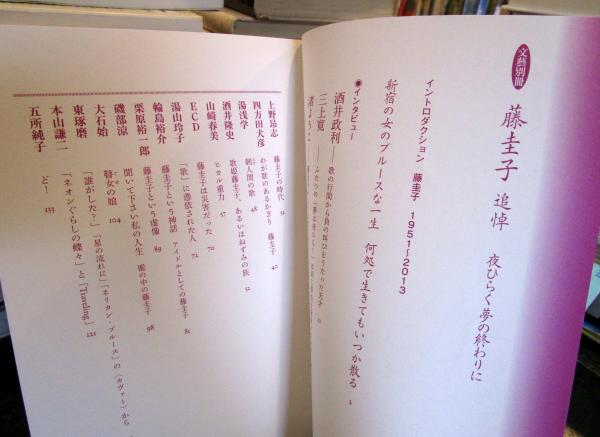 文藝別冊
藤圭子 追悼 夜ひらく夢の終わりに
イントロダクション 藤圭子 1951〜2013
新宿の女のブルースな一生 何処で生きてもいつか散る 4
◉インタビュー
酒井政利――歌の行間から負の叫びをうたった天才
三上寛――ふたつの「夢は夜ひらく」
上野昂志 藤圭子の時代 32
四方田犬彦 わが歌のあるかぎり 藤圭子 40
湯浅学 刺人間の歌 48
酒井隆史 歌姫藤圭子、あるいはねずみの族 52
山崎春美 ヒカル重力 57
ECD 藤圭子は災害だった 70
湯山玲子 「歌」に憑依された人 72
輪島裕介 藤圭子という神話 アイドルとしての藤圭子 82
栗原裕一郎 藤圭子という虚像 89
磯部涼 聞いて下さい私の人生 鑑の中の藤圭子 98
大石始 瞽女の娘 104
東琢磨 「誰がした？」「星の流れに」「ネリカン・ブルース」の〈カヴァー〉から
本山謙二 「ネオンぐらしの蝶々」と「Traveling」 121
五所純子 ど―― 133